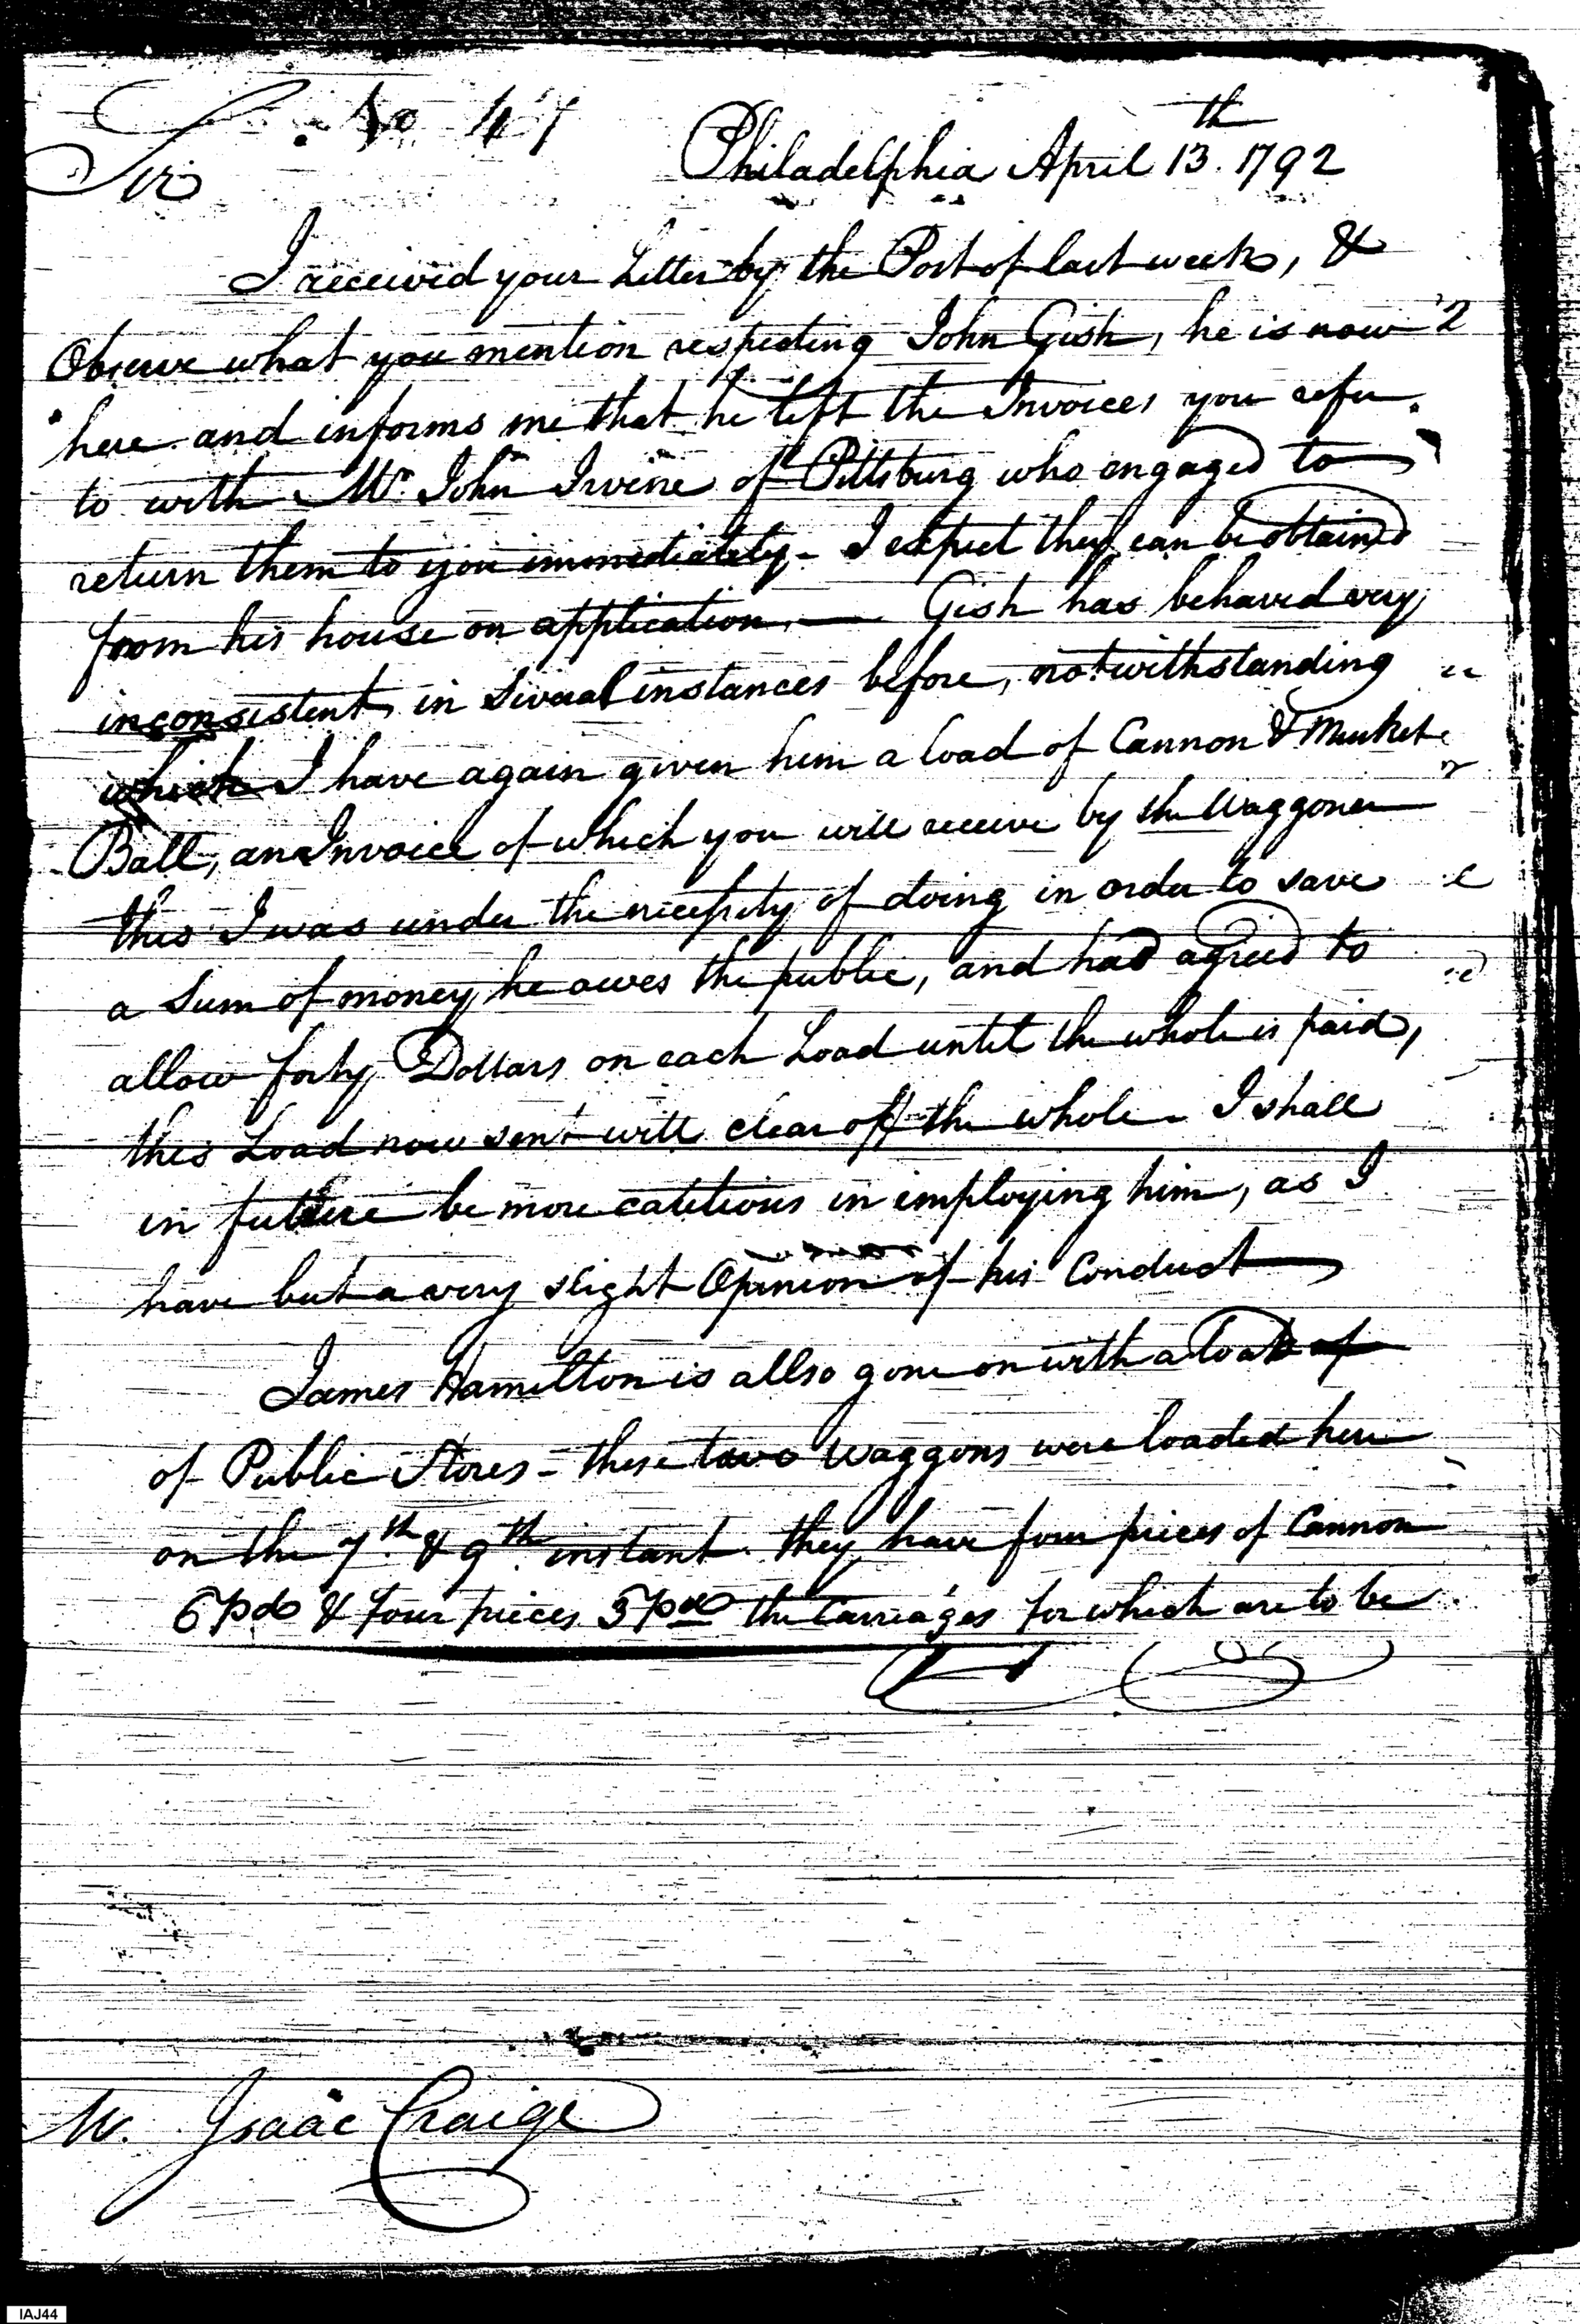 No 47
Philadelphia April 13th. 1792
Sir
I received your Letter by the Post of last week, &
Observe what you mention respecting John Gish, he is now
here and informs me that he left the Invoices you refer
to with Mr. John Irvine of Pittsburg who engaged to
return them to you immediately - I expect they can be obtained
from his house on application. — Gish has behaved very
inconsistent, in Several instances before, notwithstanding
which I have again given him a load of Cannon & Musket
Ball, an Invoice of which you will receive by the Waggoner
this I was under the necessity of doing in order to save
a Sum of money he owes the public, and had agreed to
allow forty Dollars on each Load until the whole is paid,
this Load now sent will clear off the whole - I shall
in future be more catitious in employing him, as I
have but a very slight Opinion of his Conduct
James Hamilton is allso gone on with a load of
of Public Stores - these two Waggons were loaded here
on the 7th. & 9th. instant. they have four pieces of Cannon
6 pds & four pieces 3 pds the Carriages for which are to be
Mr. Isaac Craige
IAJ44